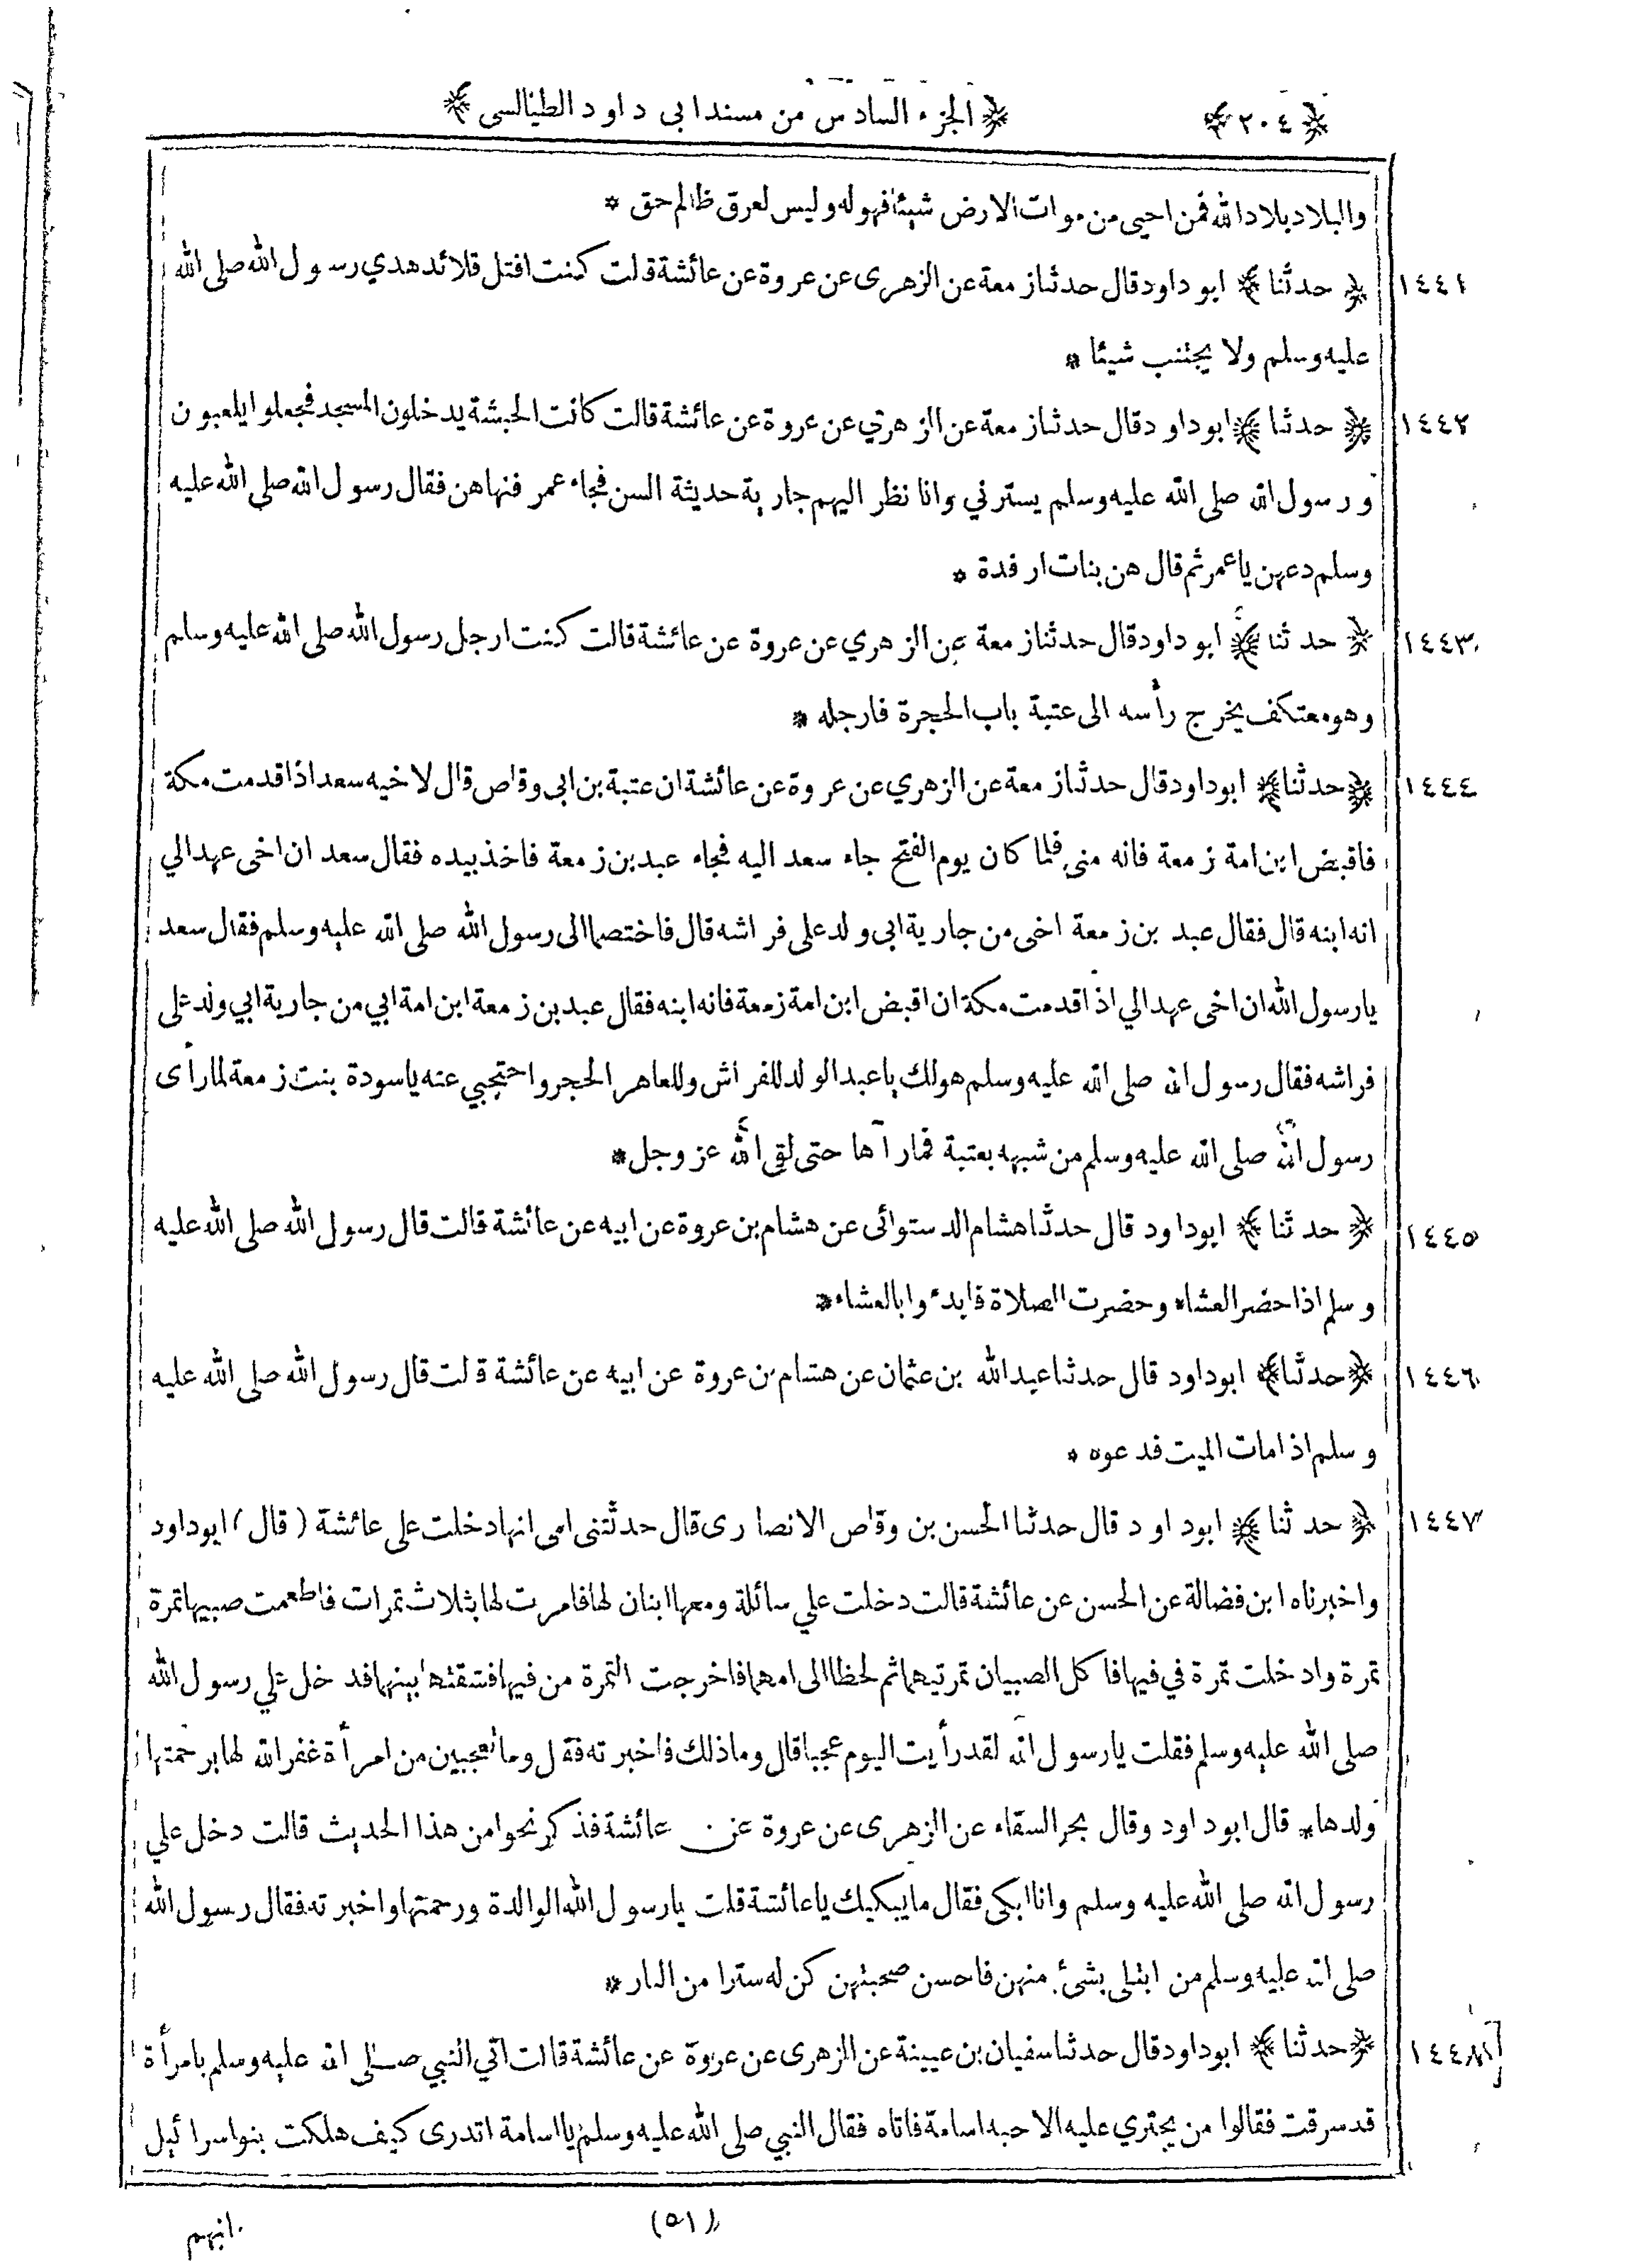 ﴿٢٠٤﴾ ﴿الجزء السادس من مسند ابى داود الطيالسى﴾
والبلاد بلاد الله فمن احيى من موات الارض شيئا فهو له وليس لعرق ظالم حق *
١٤٤١ ﴿ حدثنا ﴾ ابو داود قال حدثنا زمعة عن الزهرى عن عروة عن عائشة قالت كنت افتل قلائد هدي رسول الله صلى الله
عليه وسلم ولا يجتنب شيئا *
١٤٤٢ ﴿ حدثنا ﴾ ابو داود قال حدثنا زمعة عن الزهري عن عروة عن عائشة قالت كانت الحبشة يدخلون المسجد فجعلوا يلعبون
و رسول الله صلى الله عليه وسلم يسترني وانا نظر اليهم جارية حديثة السن فجاء عمر فنهاهن فقال رسول الله صلى الله عليه
وسلم دعهن يا عمر ثم قال هن بنات ارفدة *
١٤٤٣ ﴿ حدثنا ﴾ ابو داود قال حدثنا زمعة عن الزهري عن عروة عن عائشة قالت كنت ارجل رسول الله صلى الله عليه وسلم
وهو معتكف يخرج رأسه الى عتبة باب الحجرة فارجله *
١٤٤٤ ﴿ حدثنا ﴾ ابو داود قال حدثنا زمعة عن الزهري عن عروة عن عائشة ان عتبة بن ابى وقاص قال لاخيه سعد اذا قدمت مكة
فاقبض ابن امة زمعة فانه منى فلما كان يوم الفتح جاء سعد اليه فجاء عبد بن زمعة فاخذ بيده فقال سعد ان اخى عهد الي
انه ابنه قال فقال عبد بن زمعة اخى من جارية ابى ولد على فراشه قال فاختصما الى رسول الله صلى الله عليه وسلم فقال سعد
يا رسول الله ان اخى عهد الي اذا قدمت مكة ان اقبض ابن امة زمعة فانه ابنه فقال عبد بن زمعة ابن امة ابي من جارية ابي ولد على
فراشه فقال رسول الله صلى الله عليه وسلم هو لك يا عبد الولد للفراش وللعاهر الحجر واحتجبي عنه يا سودة بنت زمعة لما رأى
رسول الله صلى الله عليه وسلم من شبهه بعتبة فما رآها حتى لقى الله عز وجل *
١٤٤٥ ﴿ حدثنا ﴾ ابو داود قال حدثنا هشام الدستوائى عن هشام بن عروة عن ابيه عن عائشة قالت قال رسول الله صلى الله عليه
وسلم اذا حضر العشاء وحضرت الصلاة فابدءوا بالعشاء *
١٤٤٦ ﴿ حدثنا ﴾ ابو داود قال حدثنا عبد الله بن عثمان عن هشام بن عروة عن ابيه عن عائشة قالت قال رسول الله صلى الله عليه
وسلم اذا مات الميت فدعوه *
١٤٤٧ ﴿ حدثنا ﴾ ابو داود قال حدثنا الحسن بن وقاص الانصارى قال حدثتنى امى انها دخلت على عائشة ( قال ) ابو داود
واخبرناه ابن فضالة عن الحسن عن عائشة قالت دخلت علي سائلة ومعها ابنان لها فامرت لها بثلاث تمرات فاطعمت صبيها تمرة
تمرة وادخلت تمرة في فيها فاكل الصبيان تمرتيهما ثم لحظا الى امهما فاخرجت التمرة من فيها فشقتها بينهما فدخل علي رسول الله
صلى الله عليه وسلم فقلت يا رسول الله لقد رأيت اليوم عجبا قال وما ذلك فاخبرته فقال وما تعجبين من امرأة غفر الله لها برحمتها
ولدها * قال ابو داود وقال بحر السقاء عن الزهرى عن عروة عن عائشة فذكر نحوا من هذا الحديث قالت دخل علي
رسول الله صلى الله عليه وسلم وانا ابكى فقال ما يبكيك يا عائشة قلت يا رسول الله الوالدة ورحمتها واخبرته فقال رسول الله
صلى الله عليه وسلم من ابتلى بشئ منهن فاحسن صحبتهن كن له سترا من النار *
١٤٤٨ ﴿ حدثنا ﴾ ابو داود قال حدثنا سفيان بن عيينة عن الزهرى عن عروة عن عائشة قالت اتي النبي صلى الله عليه وسلم بامرأة
قد سرقت فقالوا من يجتري عليه الا حبه اسامة فاتاه فقال النبي صلى الله عليه وسلم يا اسامة اتدرى كيف هلكت بنو اسرائيل
(٥١) انهم